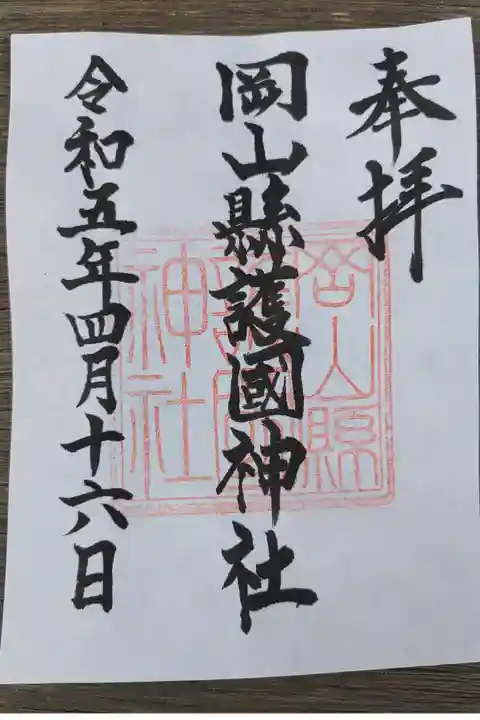 奉拝
岡山縣護國神社
令和五年四月十六日
岡山縣
護國
神社